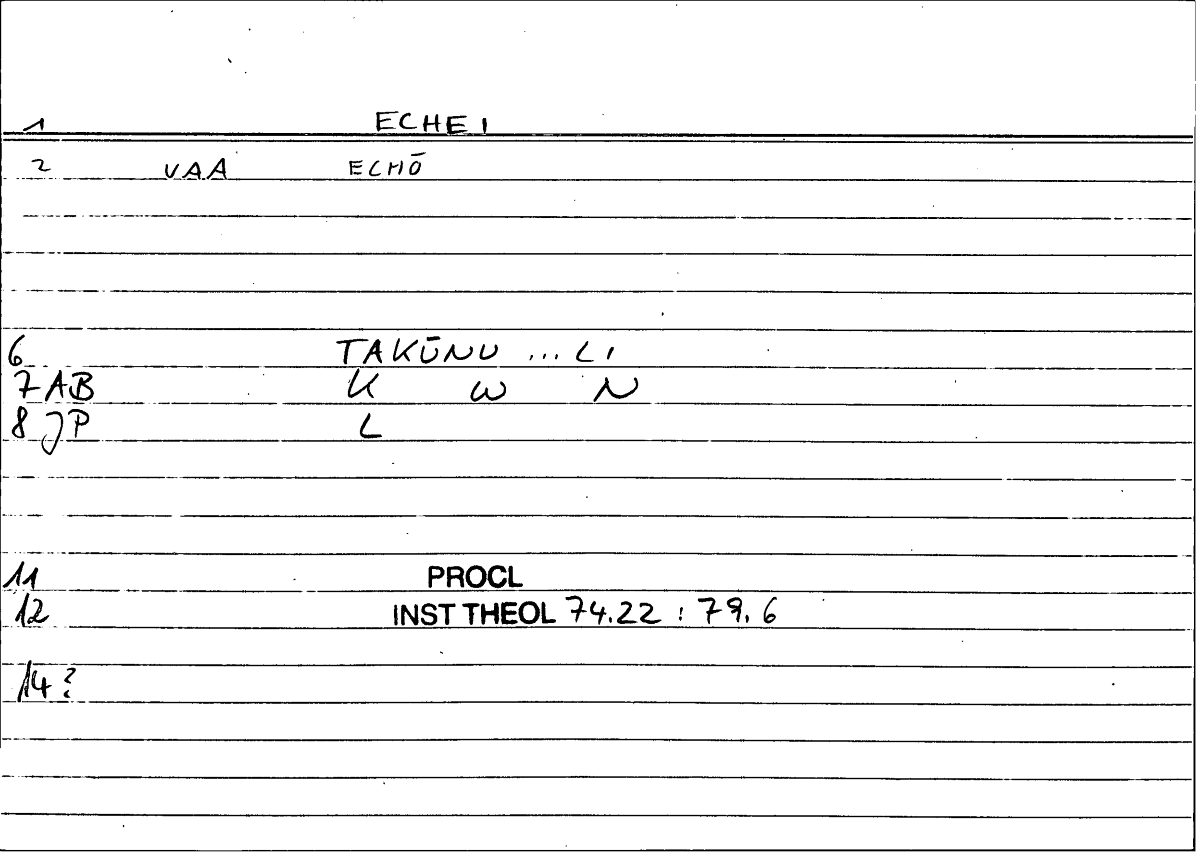 1 ECHEI
2 VAA ECHŌ
6 TAKŪNU ... LI
7 AB K W N
8 JP L
11 PROCL
12 INST THEOL 74.22 : 79.6
14 ?